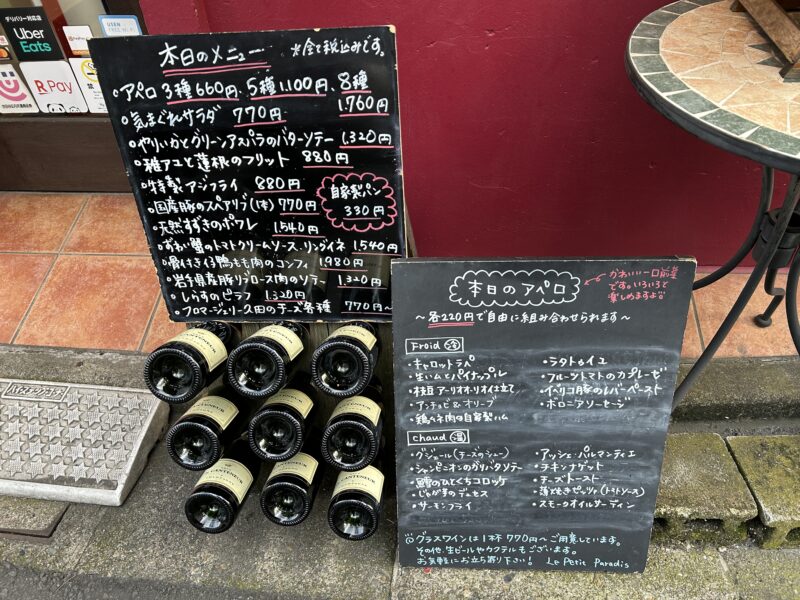 デリバリー対応店
Uber
Eats
R Pay
本日のメニュー ※全て税込みです。
・アペロ 3種660円、5種1,100円、8種 1,760円
・気まぐれサラダ 770円
・やりいかとグリーンアスパラのバターソテー 1,320円
・稚アユと蓮根のフリット 880円
・特製アジフライ 880円
・国産豚のスペアリブ(1本) 770円
自家製パン
330円
・天然すずきのポワレ 1,540円
・ずわい蟹のトマトクリームソース・リングイネ 1,540円
・骨付き仔鴨もも肉のコンフィ 1,980円
・岩手県産豚リブロース肉のソテー 1,320円
・しらすのピラフ 1,320円
・フロマージェリー久田のチーズ各種 770円〜
本日のアペロ
かわいい一口前菜
です。いろいろと
楽しめますよ
〜各220円で自由に組み合わせられます〜
Froid 冷
・キャロットラペ
・生ハムとパイナップル
・枝豆 アーリオ・オーリオ仕立て
・アンチョビ&オリーブ
・鶏ムネ肉の自家製ハム
・ラタトゥイユ
・フルーツトマトのカプレーゼ
・イベリコ豚のレバーペースト
・ボロニアソーセージ
chaud 温
・グジェール(チーズのシュー)
・シャンピニオンのガリバタソテー
・鱈のひとくちコロッケ
・じゃが芋のデュセス
・サーモンフライ
・アッシェ・パルマンティエ
・チキンナゲット
・チーズトースト
・薄焼きピッツァ(トマトソース)
・スモークオイルサーディン
グラスワインは1杯770円〜ご用意しています。
その他、生ビールやカクテルもございます。
お気軽にお立ち寄り下さい! Le Petit Paradis
CANTENEUR
CANTENEUR
ハイステップコーナー